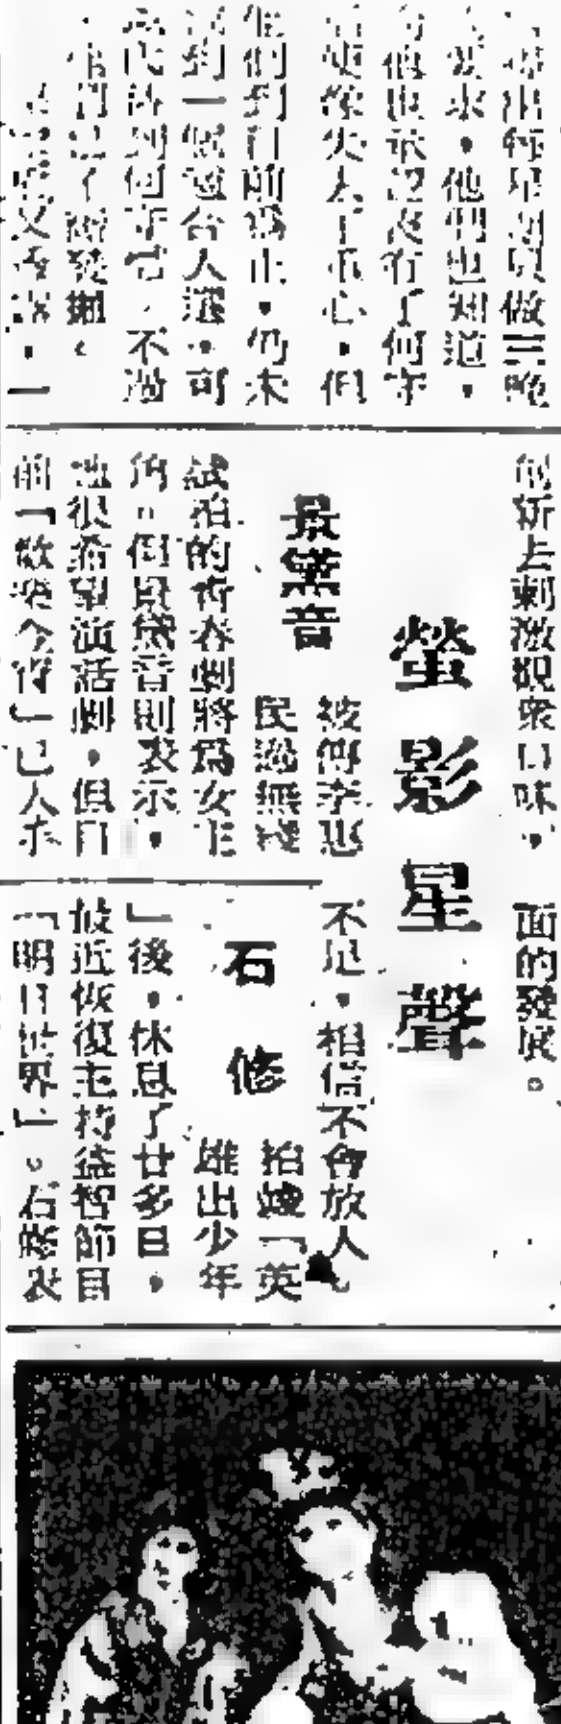 做三晚
求，他們也知道，
他也　沒有了何守
失去了重心，但
他們到目前為止，仍未
到一個適合人選，可
代替到何守信，不過
他們已了
又　，一
創新去刺激觀衆口味，
面的發展。
螢影星聲
景黛音
被傳李惠
民過無綫
試拍的青春劇將爲女主
角。但景黛音則表示，
她很希望演話劇，但目
前「歡樂今宵」已人水
不足，相信不會放人。
石修
拍竣「英
雄出少年
」後，休息了廿多日，
最近恢復主持益智節目
「明日世界」。石修表